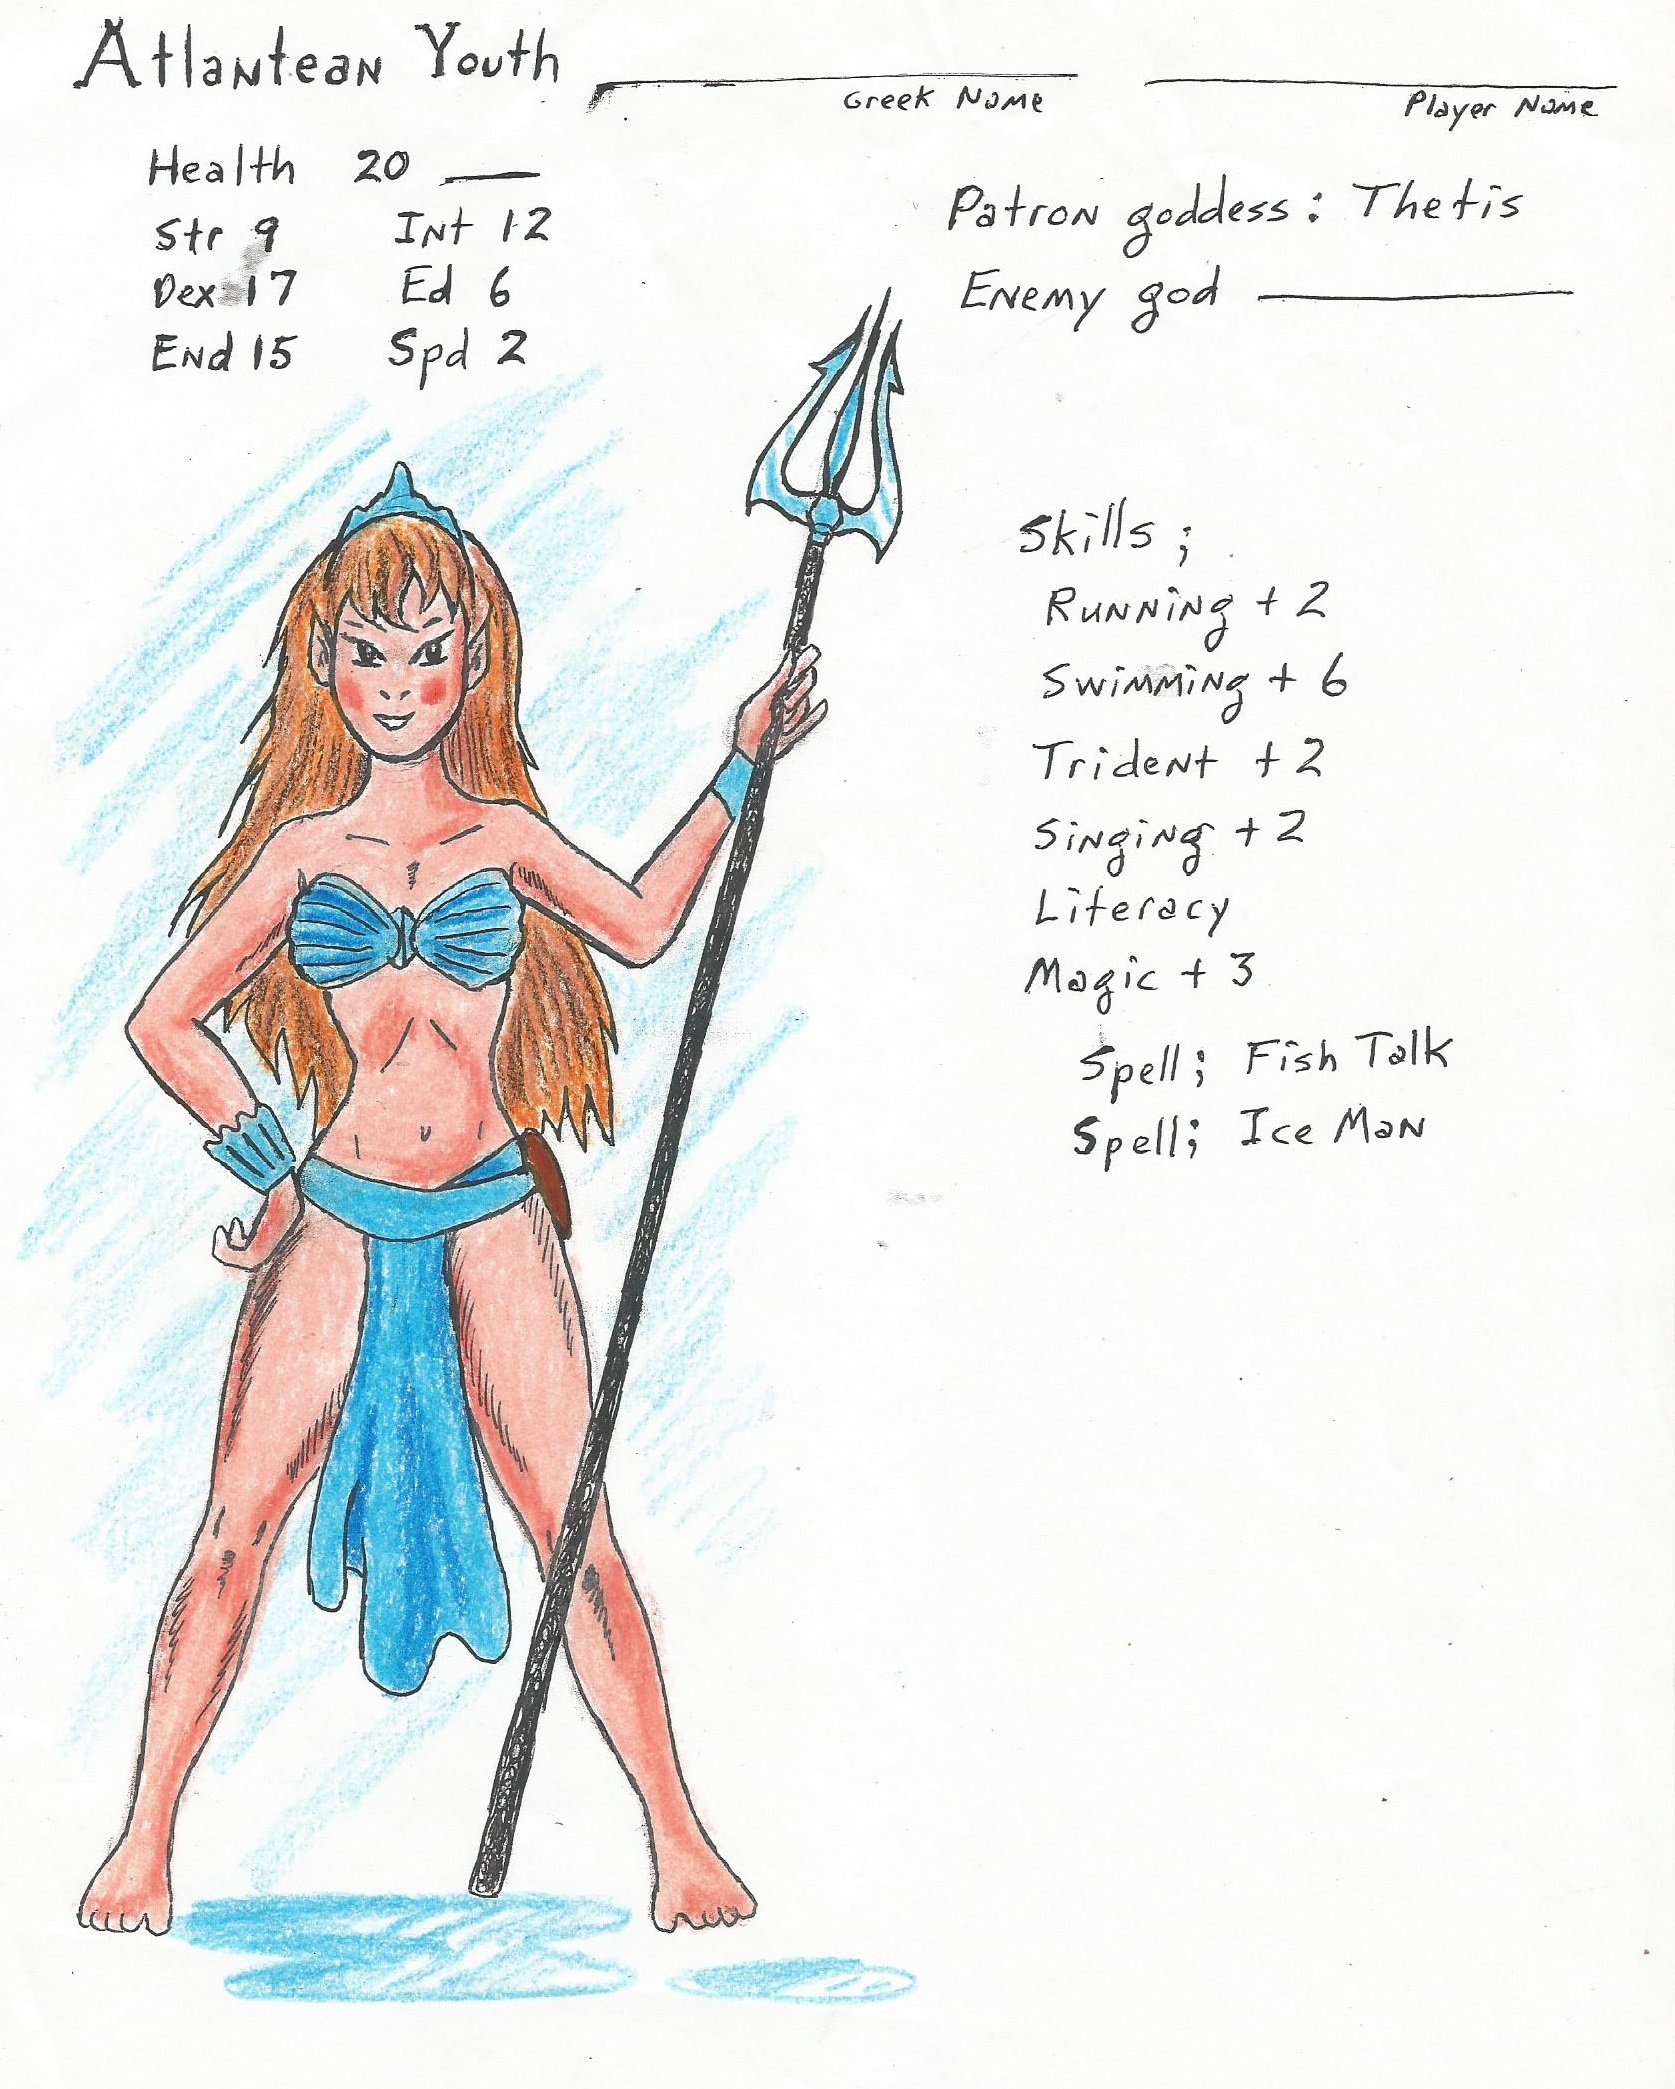 Atlantean Youth
Greek Name
Player Name
Health 20
Str 9 Int 12
Dex 17 Ed 6
End 15 Spd 2
Patron goddess: Thetis
Enemy god
Skills;
Running + 2
Swimming + 6
Trident + 2
Singing + 2
Literacy
Magic + 3
Spell; Fish Talk
Spell; Ice Man